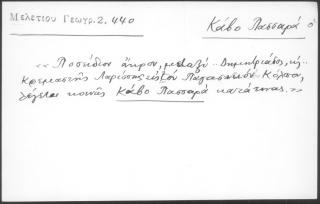 Μελετίου Γεωγρ. 2. 440
Κάβο Πασσαρά ὁ
«Ποσείδιον ἄκρον, μεταξὺ .. Δημητριάδος, κὶ ..
Κρεμαστῆς Λαρίσσης εἰς τὸν Παγασικὸν Κόλπον,
λέγεται κοινῶς Κάβο Πασσαρά κατά τινας.»